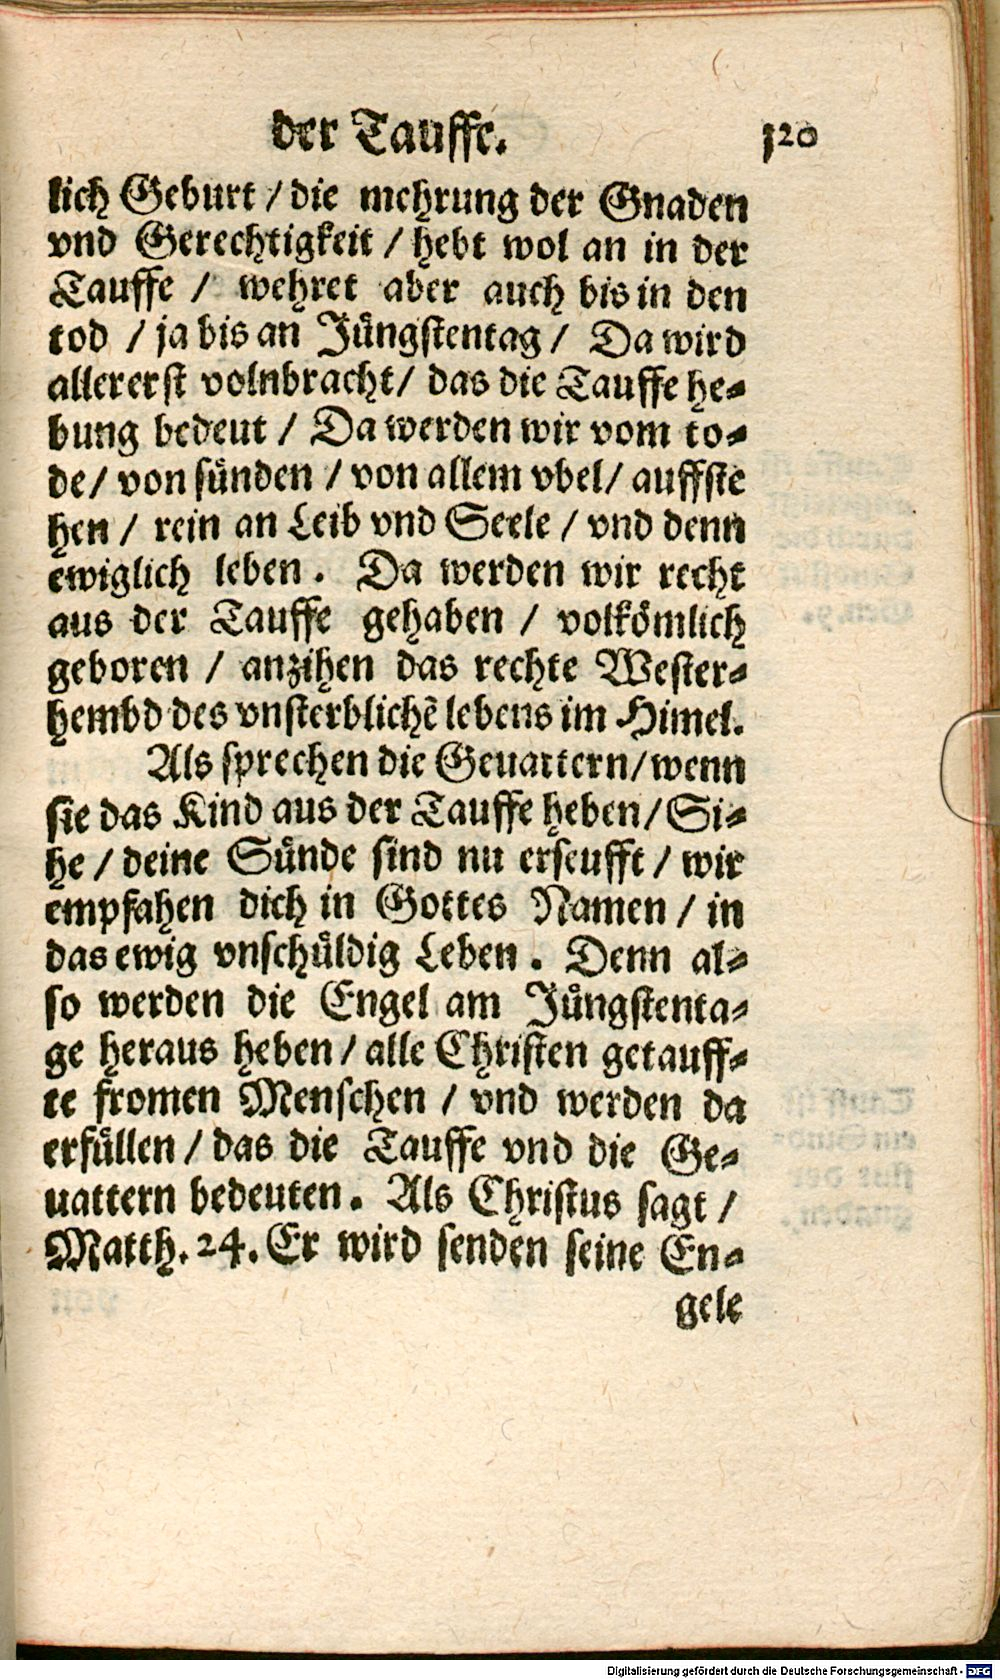 der Tauffe. 120
lich Geburt / die mehrung der Gnaden
vnd Gerechtigkeit / hebt wol an in der
Tauffe / wehret aber auch bis in den
tod / ja bis an Jüngstentag / Da wird
allererst volnbracht / das die Tauffe he-
bung bedeut / Da werden wir vom to-
de / von sünden / von allem vbel / auffste
hen / rein an Leib vnd Seele / vnd denn
ewiglich leben. Da werden wir recht
aus der Tauffe gehaben / volkömlich
geboren / anzihen das rechte Wester-
hembd des vnsterblichẽ lebens im Himel.
Als sprechen die Geuattern / wenn
sie das Kind aus der Tauffe heben / Si-
he / deine Sünde sind nu erseufft / wir
empfahen dich in Gottes Namen / in
das ewig vnschüldig Leben. Denn al-
so werden die Engel am Jüngstenta-
ge heraus heben / alle Christen getauff-
te fromen Menschen / vnd werden da
erfüllen / das die Tauffe vnd die Ge-
uattern bedeuten. Als Christus sagt /
Matth. 24. Er wird senden seine En-
gele
Digitalisierung gefördert durch die Deutsche Forschungsgemeinschaft - DFG